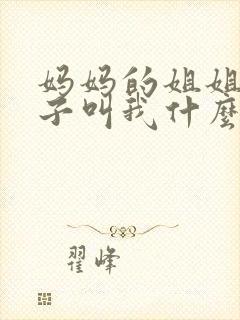 妈妈的姐姐
子叫我什麼
翟峰